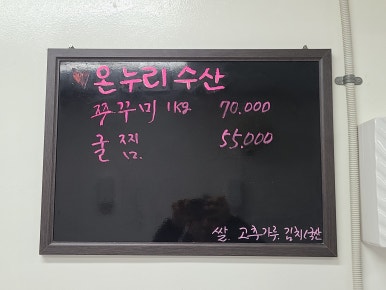 온누리수산
쭈꾸미 1Kg 70.000
굴찜 55.000
쌀. 고추가루. 김치(국산